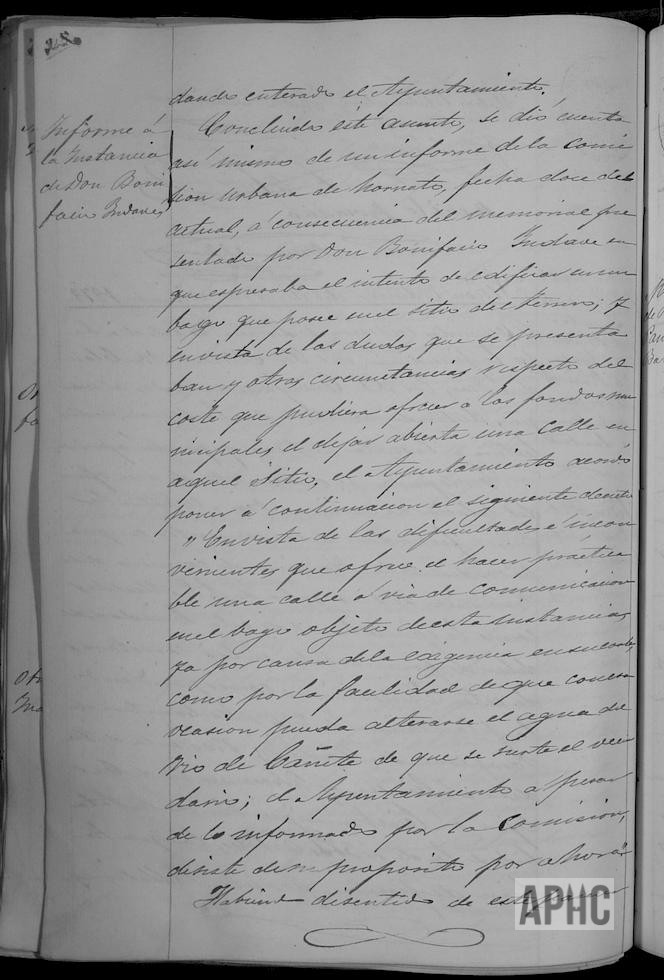 Informe á
la Instancia
de Don Boni
facio Indave
dando enterado el Ayuntamiento,
Concluido este asunto, se dió cuenta
asi mismo de un informe de la comi
sion urbana de hornato, fecha doce del
actual, á consecuencia del memorial pre
sentado por Don Bonifacio Indave en
que espresaba el intento de edificar en un
bago que posee en el sitio del terrero; y
en vista de las dudas que se presenta
ban y otras circunstancias respecto del
coste que pudiera ofrecer a los fondos mu
nicipales el dejar abierta una calle en
aquel Sitio, el Ayuntamiento acordó
poner á continuacion el siguiente decreto
"En vista de las dificultades é incon
venientes que ofrece el hacer práctica
ble una calle á via de comunicacion
en el bago objeto de esta instancia,
ya por causa de la exigencia en su coste,
como por la facilidad de que con esta
ocasion pueda alterarse el agua de
rio de Cañete de que se surte el vecin
dario; el Ayuntamiento á pesar
de lo informado por la Comision,
desiste de su proposito por ahora"
Habiendo disentido de este
APHC